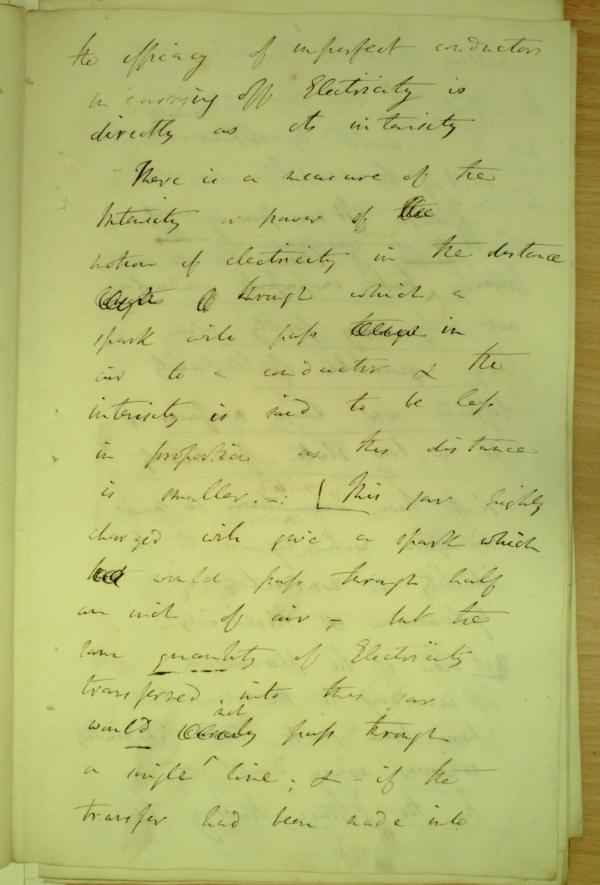 the efficacy of imperfect conductors
in carrying off Electricity is
directly as its intensity
There is a measure of the
Intensity or power of the
action of electricity in the distance
through which a
spark will pass in
air to a conductor & the
intensity is said to be less
in proportion as this distance
is smaller. —: [This jar highly
charged will give a spark which
would pass through half
an inch of air — but the
same quantity of Electricity
transferred into this jar
would not pass through
a single line; & - if the
transfer had been made into